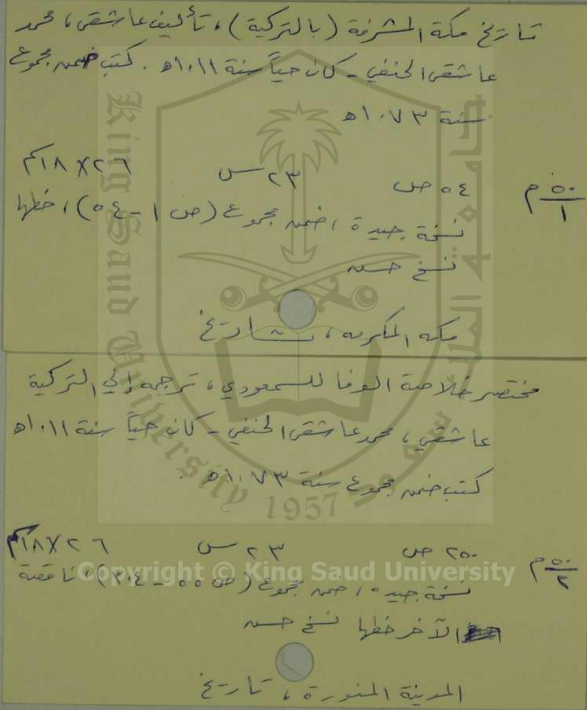 تاريخ مكة المشرفة (بالتركية)، تأليف عاشقي، محمد
عاشقي الحنفي - كان حياً سنة ١٠١١هـ. كتب ضمن مجموع
سنة ١٠٧٣هـ
٥٠/١ م
٥٤ ص ٢٣ س ٢٦×١٨ سم
نسخة جيدة، ضمن مجموع (ص ١ - ٥٤)، خطها
نسخ حسن
مكة المكرمة، تاريخ
مختصر خلاصة الوفا للسمهودي، ترجمه إلى التركية
عاشقي، محمد عاشقي الحنفي - كان حياً سنة ١٠١١هـ
كتب ضمن مجموع سنة ١٠٧٣هـ.
٥٠/٢ م
٢٥٠ ص ٢٣ س ٢٦×١٨ سم
نسخة جيدة، ضمن مجموع (ص ٥٥ - ٣٠٤)، ناقصة
الآخر خطها نسخ حسن
المدينة المنورة، تاريخ
King Saud University
1957
Copyright © King Saud University